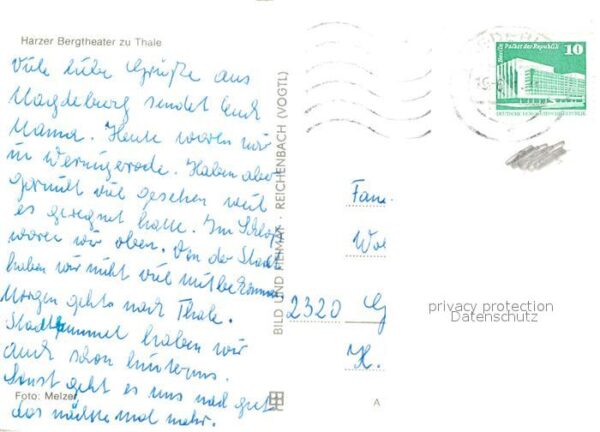 Harzer Bergtheater zu Thale
Viele liebe Grüße aus
Magdeburg sendet Euch
Mama. Heute waren wir
in Wernigerode. Haben aber
gesehen weil
es geregnet hatte. Im Schloß
waren wir oben. Von der Stadt
haben wir nicht viel mitbekommen
Morgen gehts nach Thale.
Stadtbummel haben wir
auch schon hinter uns.
Sonst geht es uns noch gut
das nächste mal mehr.
Foto: Melzer
BILD UND HEIMAT · REICHENBACH (VOGTL)
A
Berlin, Palast der Republik
10
DEUTSCHE DEMOKRATISCHE REPUBLIK
Fam.
2320 G
privacy protection
Datenschutz